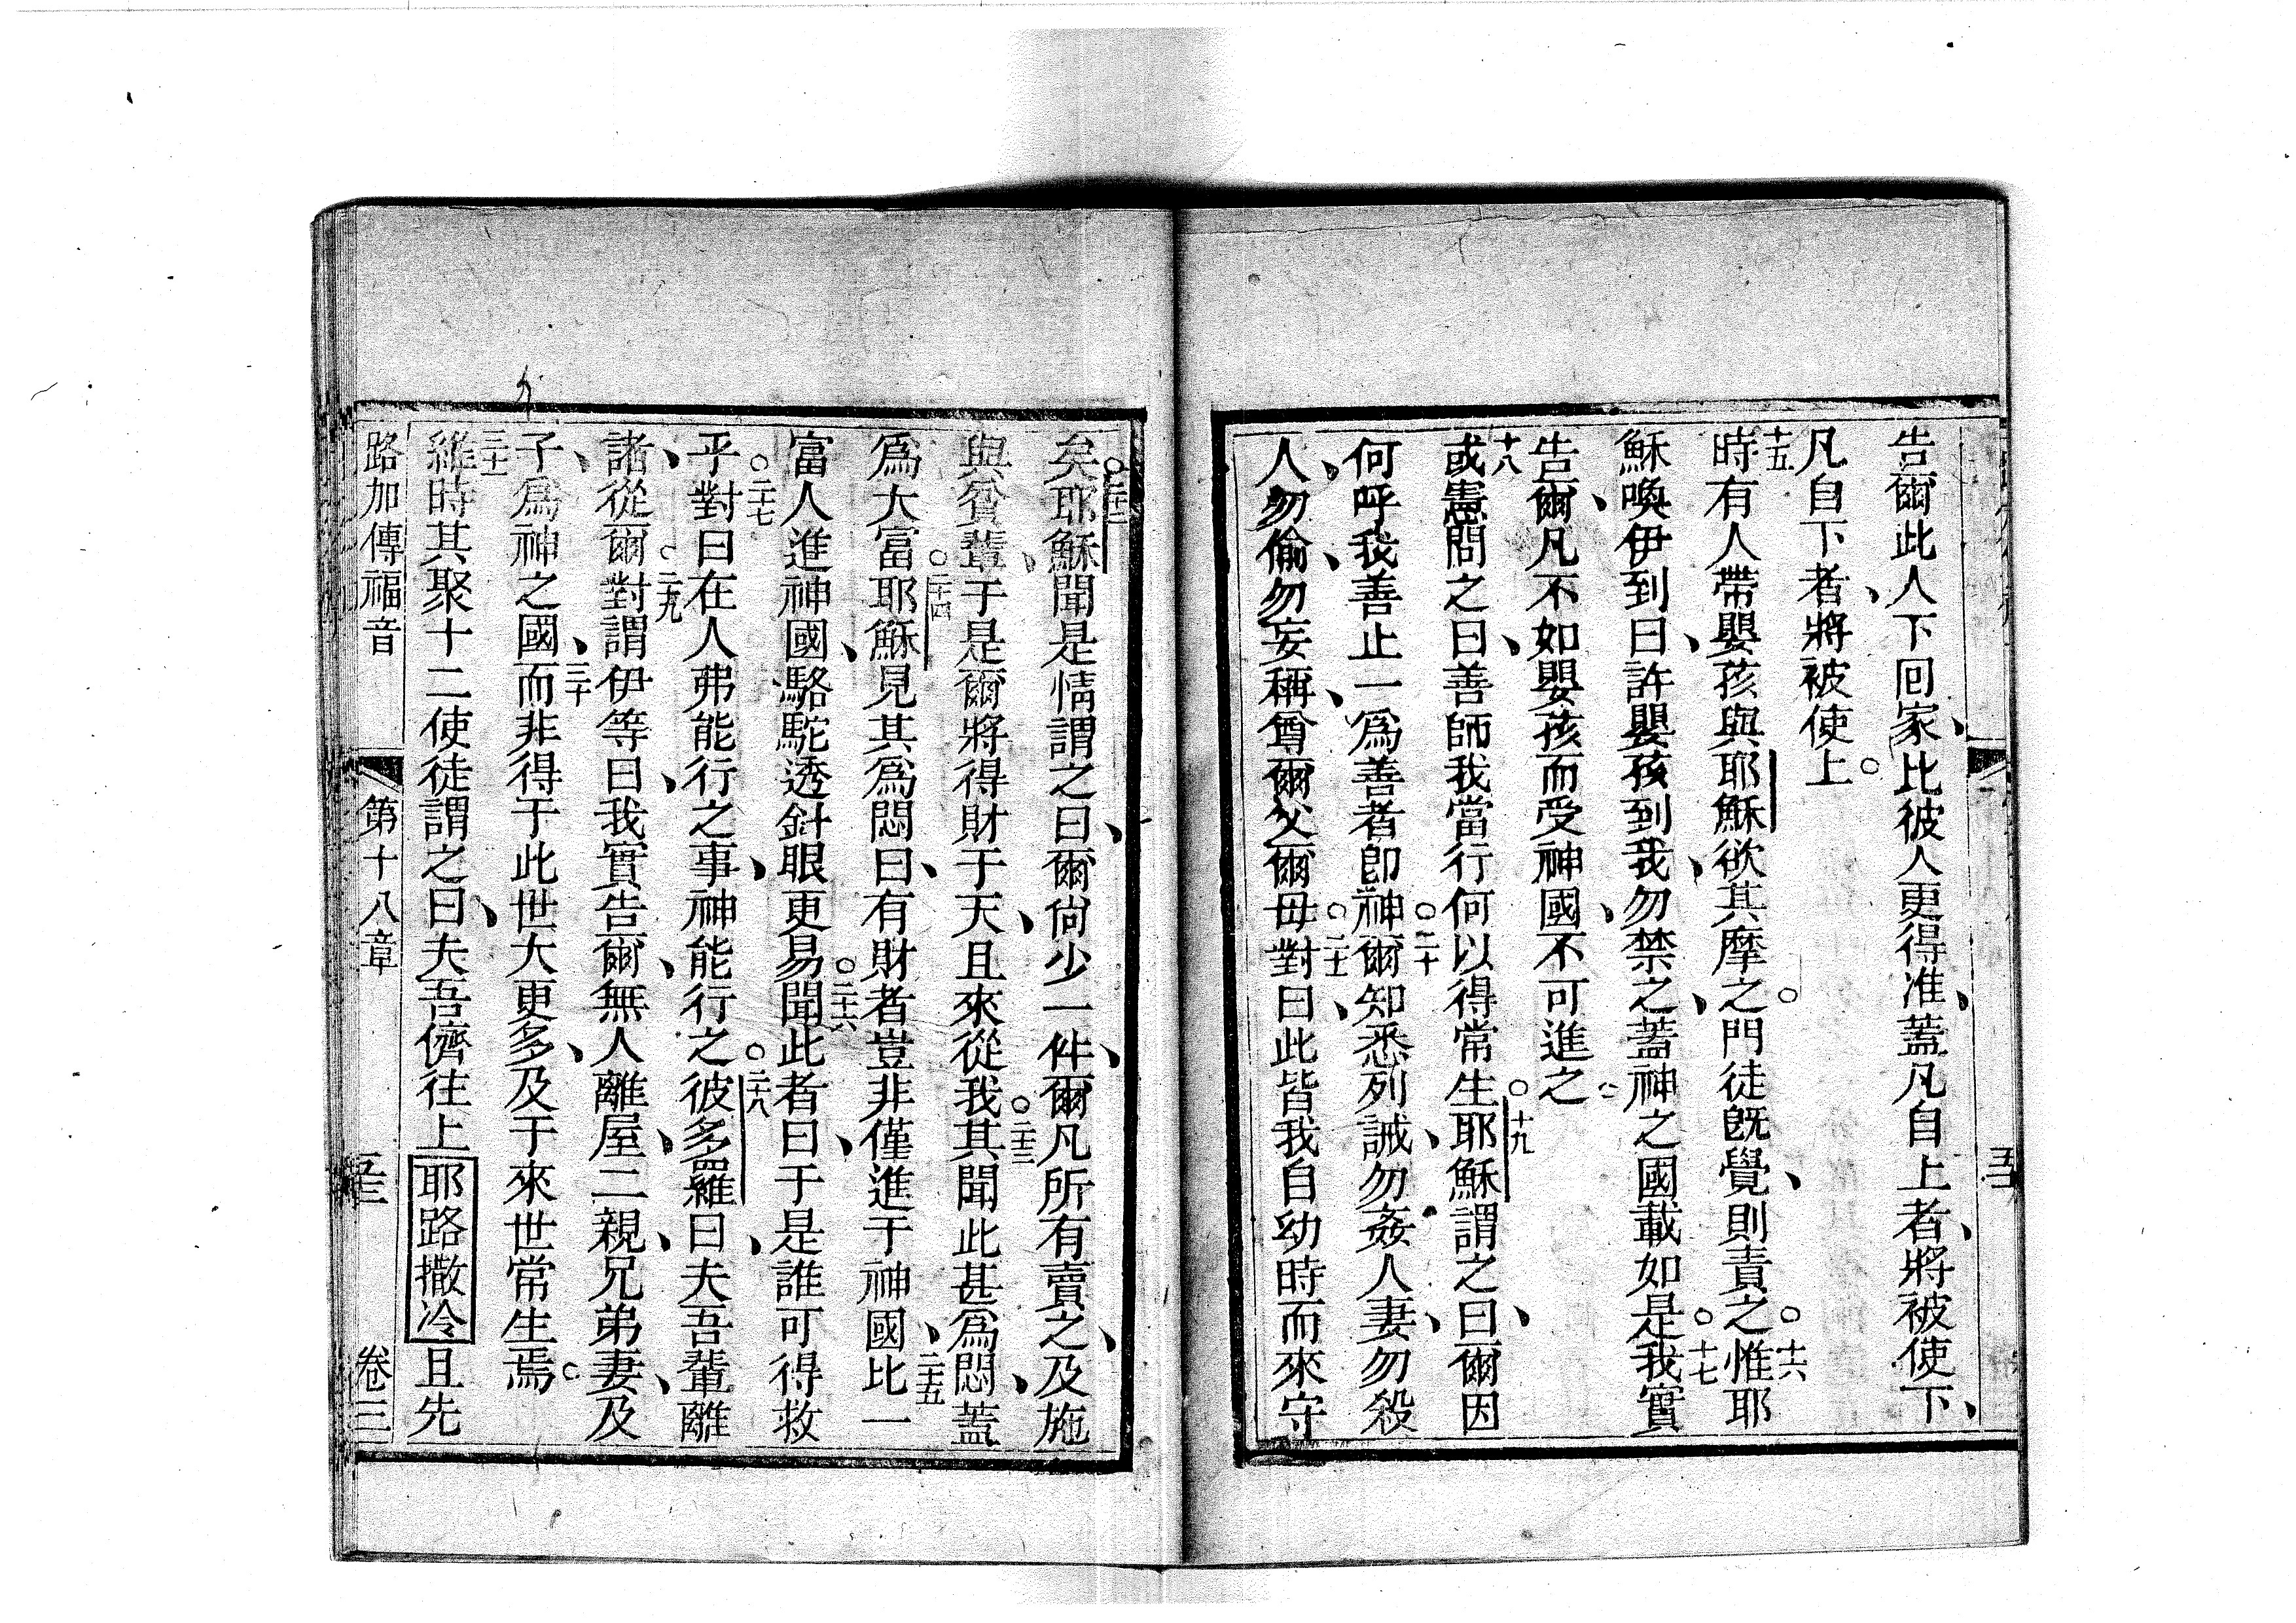 告爾此人下回家、比彼人更得准、蓋凡自上者、將被使下、
凡自下者、將被使上。
十五時有人帶嬰孩與耶穌欲其摩之。門徒旣覺、則責之。十六惟耶
穌喚伊到曰、許嬰孩到我、勿禁之、蓋神之國載如是。十七我實
告爾、凡不如嬰孩而受神國、不可進之。
十八或憲問之曰、善師我當行何以得常生。十九耶穌謂之曰、爾因
何呼我善止一爲善者卽神。二十爾知悉列誡、勿姦人妻、勿殺
人、勿偷、勿妄稱、尊爾父爾母。二十一對曰、此皆我自幼時而來守
矣。二十二耶穌聞是情謂之曰、爾尙少一件、爾凡所有賣之、及施
與貧輩、于是爾將得財于天、且來從我。二十三其聞此甚爲悶、蓋
爲大富。二十四耶穌見其爲悶曰、有財者豈非僅進于神國、二十五比一
富人進神國、駱駝透針眼更易。二十六聞此者曰、于是誰可得救
乎。二十七對曰在人弗能行之事、神能行之。二十八彼多羅曰、夫吾輩離
諸、從爾。二十九對謂伊等曰、我實告爾、無人離屋、二親、兄弟、妻、及
子、爲神之國、三十而非得于此世大更多、及于來世常生焉。
三十一維時其聚十二使徒謂之曰、夫吾儕往上耶路撒冷且先
路加傳福音 第十八章 五十三 卷三